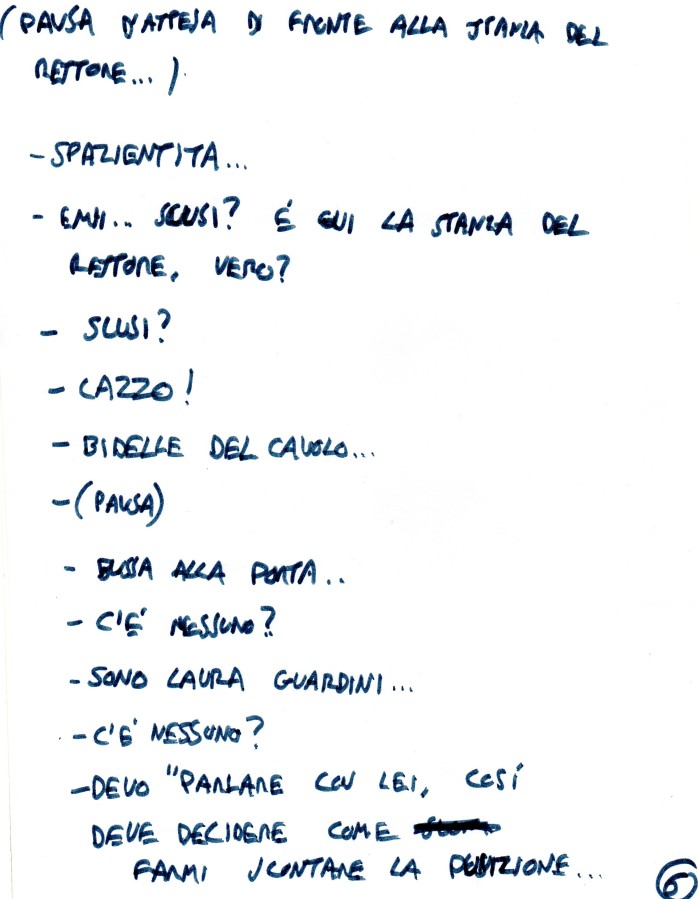 (PAUSA D'ATTESA DI FRONTE ALLA STANZA DEL
RETTORE...)
- SPAZIENTITA...
- EMH... SCUSI? É QUI LA STANZA DEL
RETTORE, VERO?
- SCUSI?
- CAZZO!
- BIDELLE DEL CAVOLO...
- (PAUSA)
- BUSSA ALLA PORTA..
- C'E' NESSUNO?
- SONO LAURA GUARDINI...
- C'E' NESSUNO?
- DEVO "PARLARE CON LEI, COSÍ
DEVE DECIDERE COME
FARMI SCONTARE LA PUNIZIONE...
6